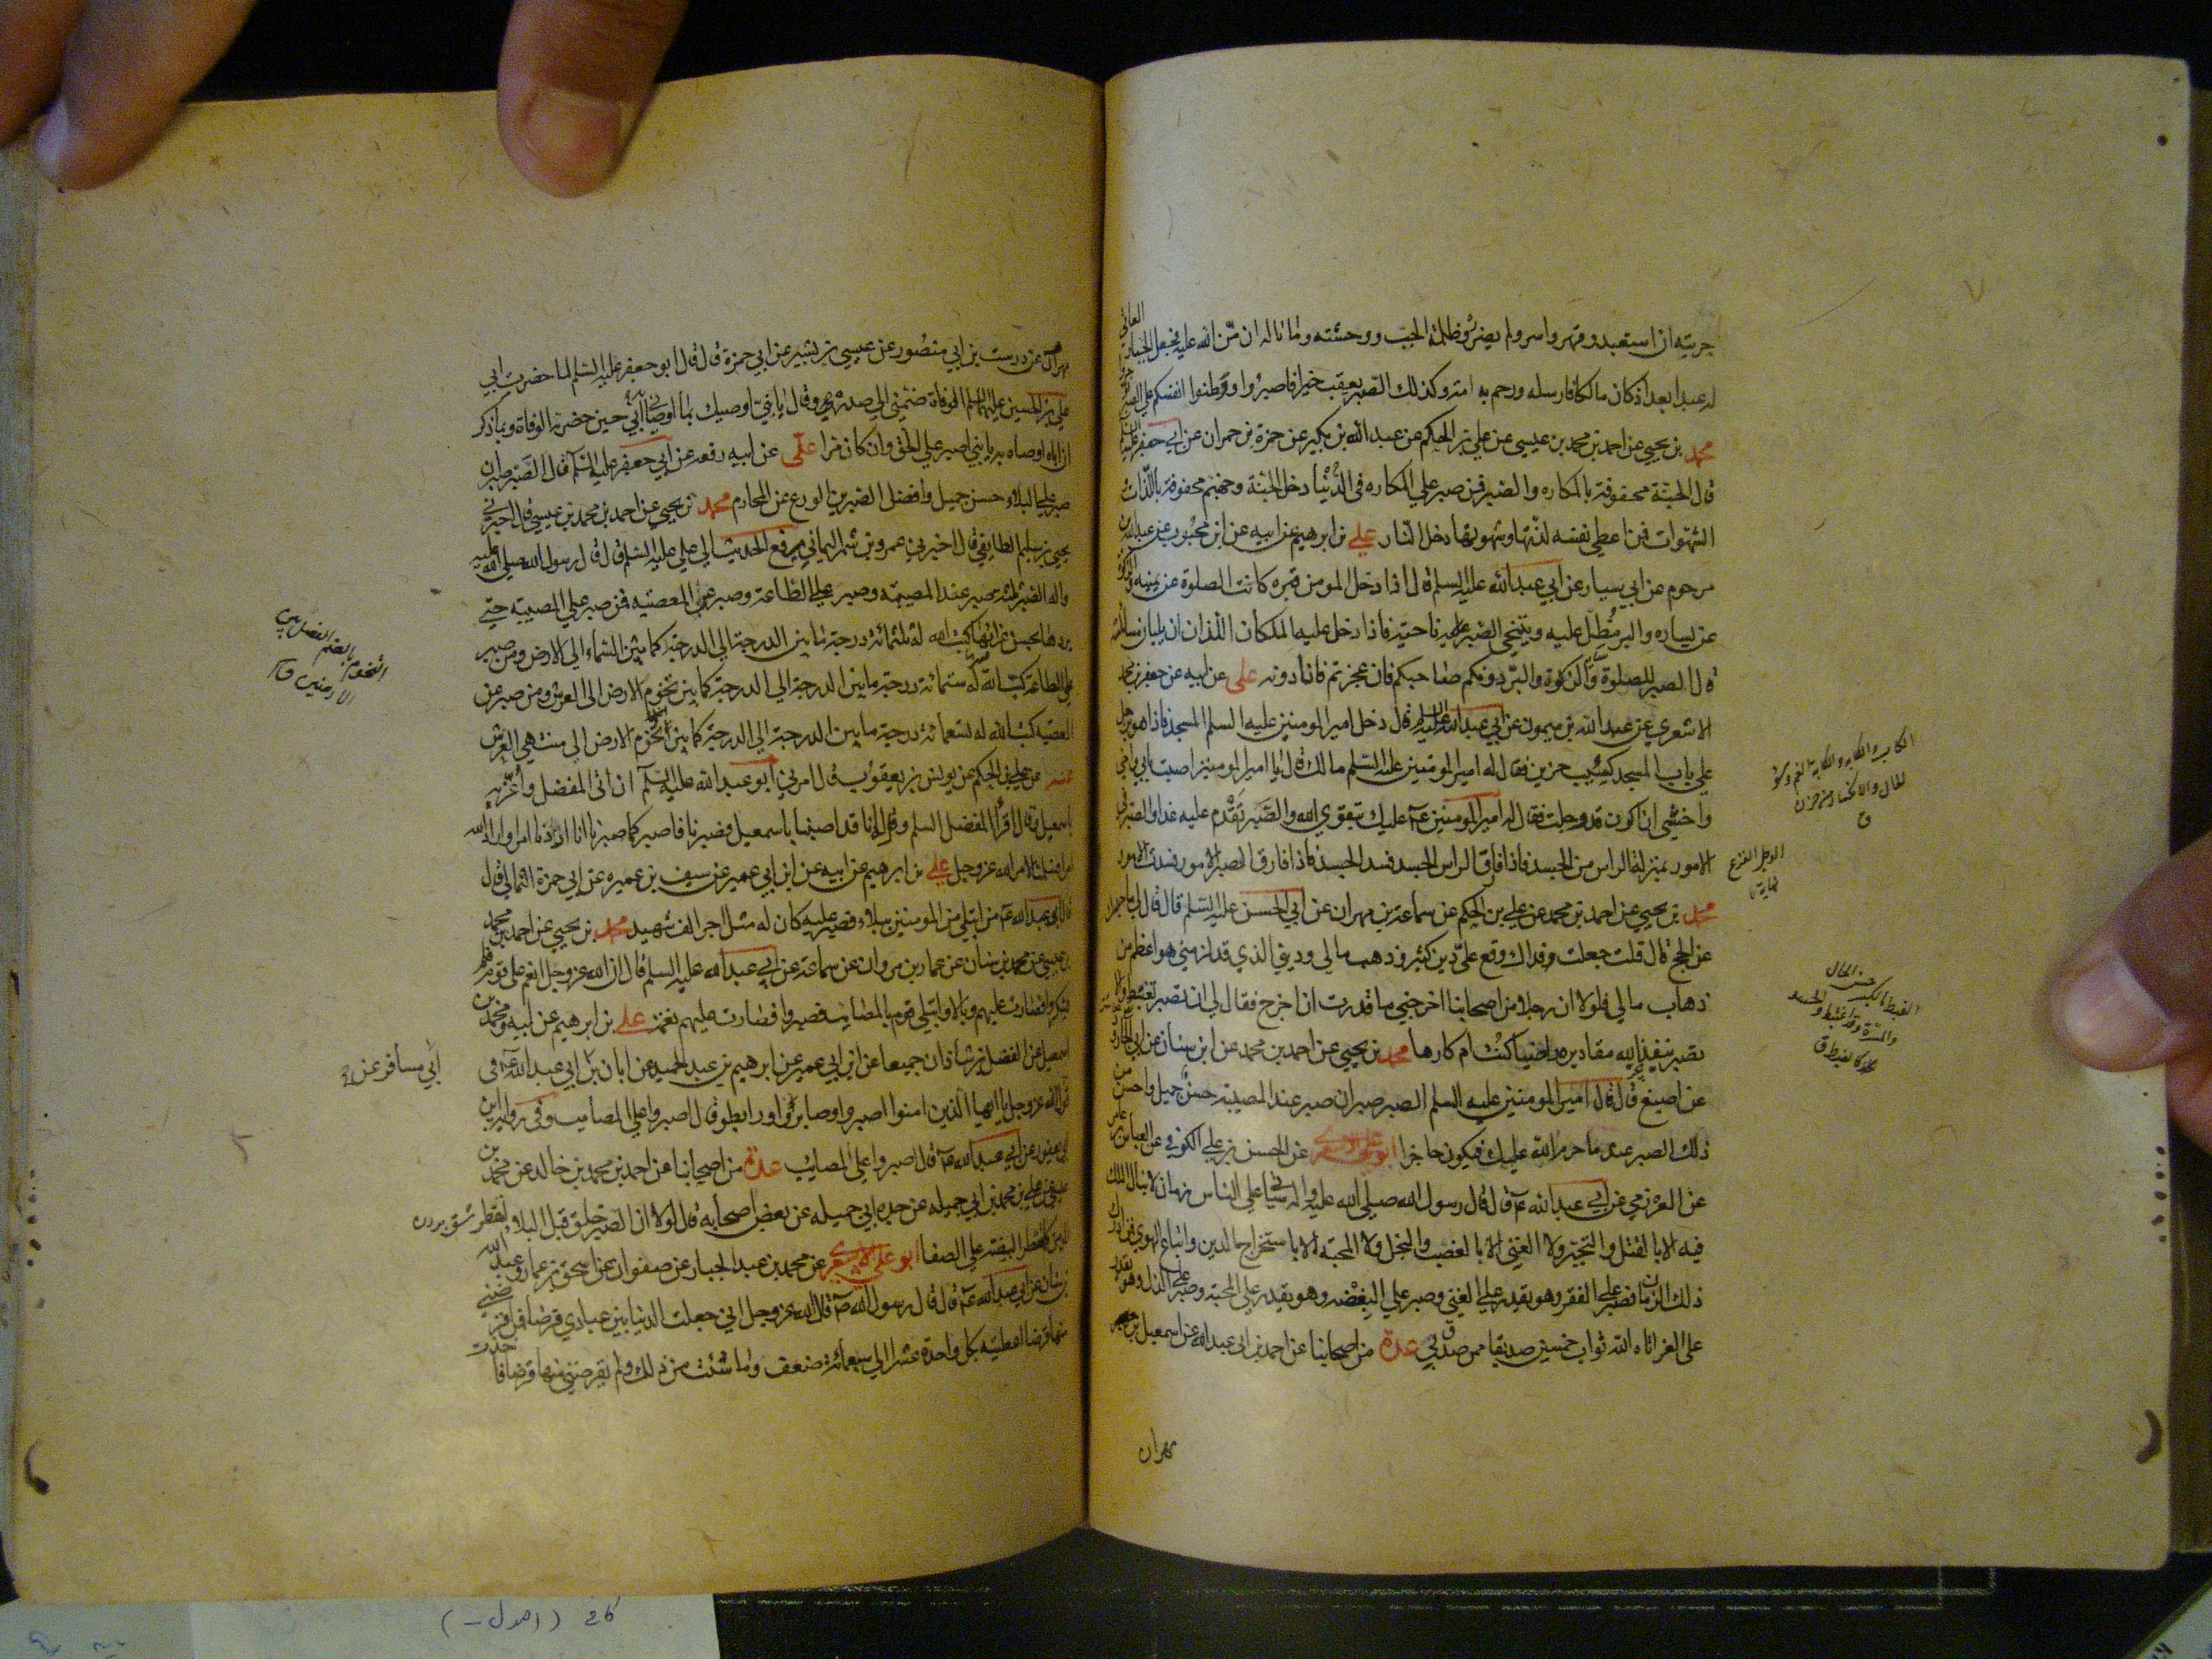 حريته ان استعبد وقهر واسر ولم يضرره ظلمة الجب ووحشته وما ناله ان منّ الله عليه فجعل الجبار العاتي
له عبدا بعد اذ كان مالكا فارسله ورحم به امة وكذلك الصبر يعقب خيرا فاصبروا ووطنوا انفسكم على الصبر
محمد بن يحيى عن احمد بن محمد بن عيسى عن علي بن الحكم عن عبد الله بن بكير عن حمزة بن حمران عن ابي جعفر عليه السلم
قال الجنة محفوفة بالمكاره والصبر فمن صبر على المكاره في الدنيا دخل الجنة وجهنم محفوفة باللذات
الشهوات فمن اعطى نفسه لذتها وشهوتها دخل النار علي بن ابرهيم عن ابيه عن ابن محبوب عن عبد الله بن
مرحوم عن ابي سيار عن ابي عبد الله عليه السلم قال اذا دخل المومن قبره كانت الصلوة عن يمينه والزكوة
عن يساره والبر مُطِل عليه ويتنحى الصبر ناحية فاذا دخل عليه الملكان اللذان يليان مسائلته
قال الصبر للصلوة والزكوة والبر دونكم صاحبكم فان عجزتم فانا دونه علي عن ابيه عن جعفر بن محمد
الاشعري عن عبد الله بن ميمون عن ابي عبد الله عليه السلم قال دخل امير المومنين عليه السلم المسجد فاذا هو برجل
على باب المسجد كئيب حزين فقال له امير المومنين عليه السلم مالك قال يا امير المومنين اصبت بابي واخي
واخشى ان اكون قد وجلت فقال له امير المومنين عم عليك بتقوى الله والصبر تَقْدم عليه غدا والصبر في
الامور بمنزلة الراس من الجسد فاذا فارق الراس الجسد فسد الجسد فاذا فارق الصبر الامور فسدت الامور
محمد بن يحيى عن احمد بن محمد عن علي بن الحكم عن سماعة بن مهران عن ابي الحسن عليه السلم قال قال لي ما حبسك
عن الحج قال قلت جعلت فداك وقع علي دين كثير وذهب مالي وديني الذي قد لزمني هو اعظم من
ذهاب مالي فلولا ان رجلا من اصحابنا اخرجني ما قدرت ان اخرج فقال لي ان تصبر تغتبط والا
تصبر ينفذ الله مقاديره راضيا كنت ام كارها محمد بن يحيى عن احمد بن محمد عن ابن سنان عن ابي الجارود
عن اصبغ قال قال امير المومنين عليه السلم الصبر صبران صبر عند المصيبة حسن جميل واحسن من
ذلك الصبر عند ما حرم الله عليك فيكون حاجزا ابو علي الاشعري عن الحسن بن علي الكوفي عن العباس بن عامر
عن العرزمي عن ابي عبد الله ع قال قال رسول الله صلى الله عليه واله سياتي على الناس زمان لا ينال الملك
فيه الا بالقتل والتجبر ولا الغنى الا بالغضب والبخل ولا المحبة الا باستخراج الدين واتباع الهوى فمن ادرك
ذلك الزمان فصبر على الفقر وهو يقدر على الغنى وصبر على البغضه وهو يقدر على المحبة وصبر على الذل وهو يقدر
على العز اتاه الله ثواب خمسين صديقا ممن صدق بي عدة من اصحابنا عن احمد بن ابي عبد الله عن اسمعيل بن
مهران
الوجل الفزع
مهران عن درست بن ابي منصور عن عيسى بن بشير عن ابي حمزة قال قال ابو جعفر عليه السلم لما حضرت ابي
علي بن الحسين عليهما السلم الوفاة ضمني الى صدره وقال يا بنيّ اوصيك بما اوصاني به ابي حين حضرته الوفاة وبما ذكر
ان اباه اوصاه به يا بني اصبر على الحق وان كان مرا علي عن ابيه رفعه عن ابي جعفر عليه السلم قال الصبر صبران
صبر على البلاء حسن جميل وافضل الصبرين الورع عن المحارم محمد بن يحيى عن احمد بن محمد بن عيسى قال اخبرني
يحيى بن سليم الطايفي قال اخبرني عمرو بن شمر اليماني يرفع الحديث الى علي عليه السلم قال قال رسول الله صلى الله عليه
واله الصبر ثلثة صبر عند المصيبة وصبر على الطاعة وصبر عن المعصية فمن صبر على المصيبة حتى
يردها بحسن عزائها كتب الله له ثلثمائة درجة ما بين الدرجة الى الدرجة كما بين السماء الى الارض ومن صبر
على الطاعة كتب الله له ستمائة درجة ما بين الدرجة الى الدرجة كما بين تخوم الارض الى العرش ومن صبر عن
المعصية كتب الله له تسعمائة درجة ما بين الدرجة الى الدرجة كما بين تخوم الارض الى منتهى العرش
عنه عن علي بن الحكم عن يونس بن يعقوب قال امرني ابو عبد الله عليه السلم ان اتي المفضل واعزيه
باسمعيل وقال اقرأ المفضل السلم وقل له انا قد اصبنا باسمعيل فصبرنا فاصبر كما صبرنا انا اردنا امرا واراد الله
امرا فسلمنا لامر الله عز وجل علي بن ابرهيم عن ابيه عن ابن ابي عمير عن سيف بن عميره عن ابي حمزة الثمالي قال
قال ابو عبد الله عم من ابتلي من المومنين ببلاء فصبر عليه كان له مثل اجر الف شهيد محمد بن يحيى عن احمد بن محمد
بن عيسى عن محمد بن سنان عن عمار بن مروان عن سماعة عن ابي عبد الله عليه السلم قال ان الله عز وجل انعم على قوم فلم
يشكروا فصارت عليهم وبالا وابتلى قوم بالمصايب فصبروا فصارت عليهم نعمة علي بن ابرهيم عن ابيه ومحمد بن
اسمعيل عن الفضل بن شاذان جميعا عن ابن ابي عمير عن ابرهيم بن عبد الحميد عن ابان بن ابي عبد الله عم في
قول الله عز وجل يا ايها الذين امنوا اصبروا وصابروا ورابطوا قال اصبروا على المصايب وفي رواية ابن
ابي يعفور عن ابي عبد الله عم قال اصبروا على المصائب عدة من اصحابنا عن احمد بن محمد بن خالد عن محمد بن
عيسى عن علي بن محمد بن ابي جميله عن جده ابي جميله عن بعض اصحابه قال لولا ان الصبر خلق قبل البلاء لتفطر
المومن كما تتفطر البيضة على الصفا ابو علي الاشعري عن محمد بن عبد الجبار عن صفوان عن اسحق بن عمار وعبد الله
بن سنان عن ابي عبد الله عم قال قال رسول الله ص قال الله عز وجل اني جعلت الدنيا بين عبادي قرضا فمن اقرضني
منها قرضا اعطيته بكل واحدة عشرا الى سبعمائة ضعف وما شئت من ذلك ولم يقرضني منها قرضا فا
ابي مسافر عن
كافى (اصول -)